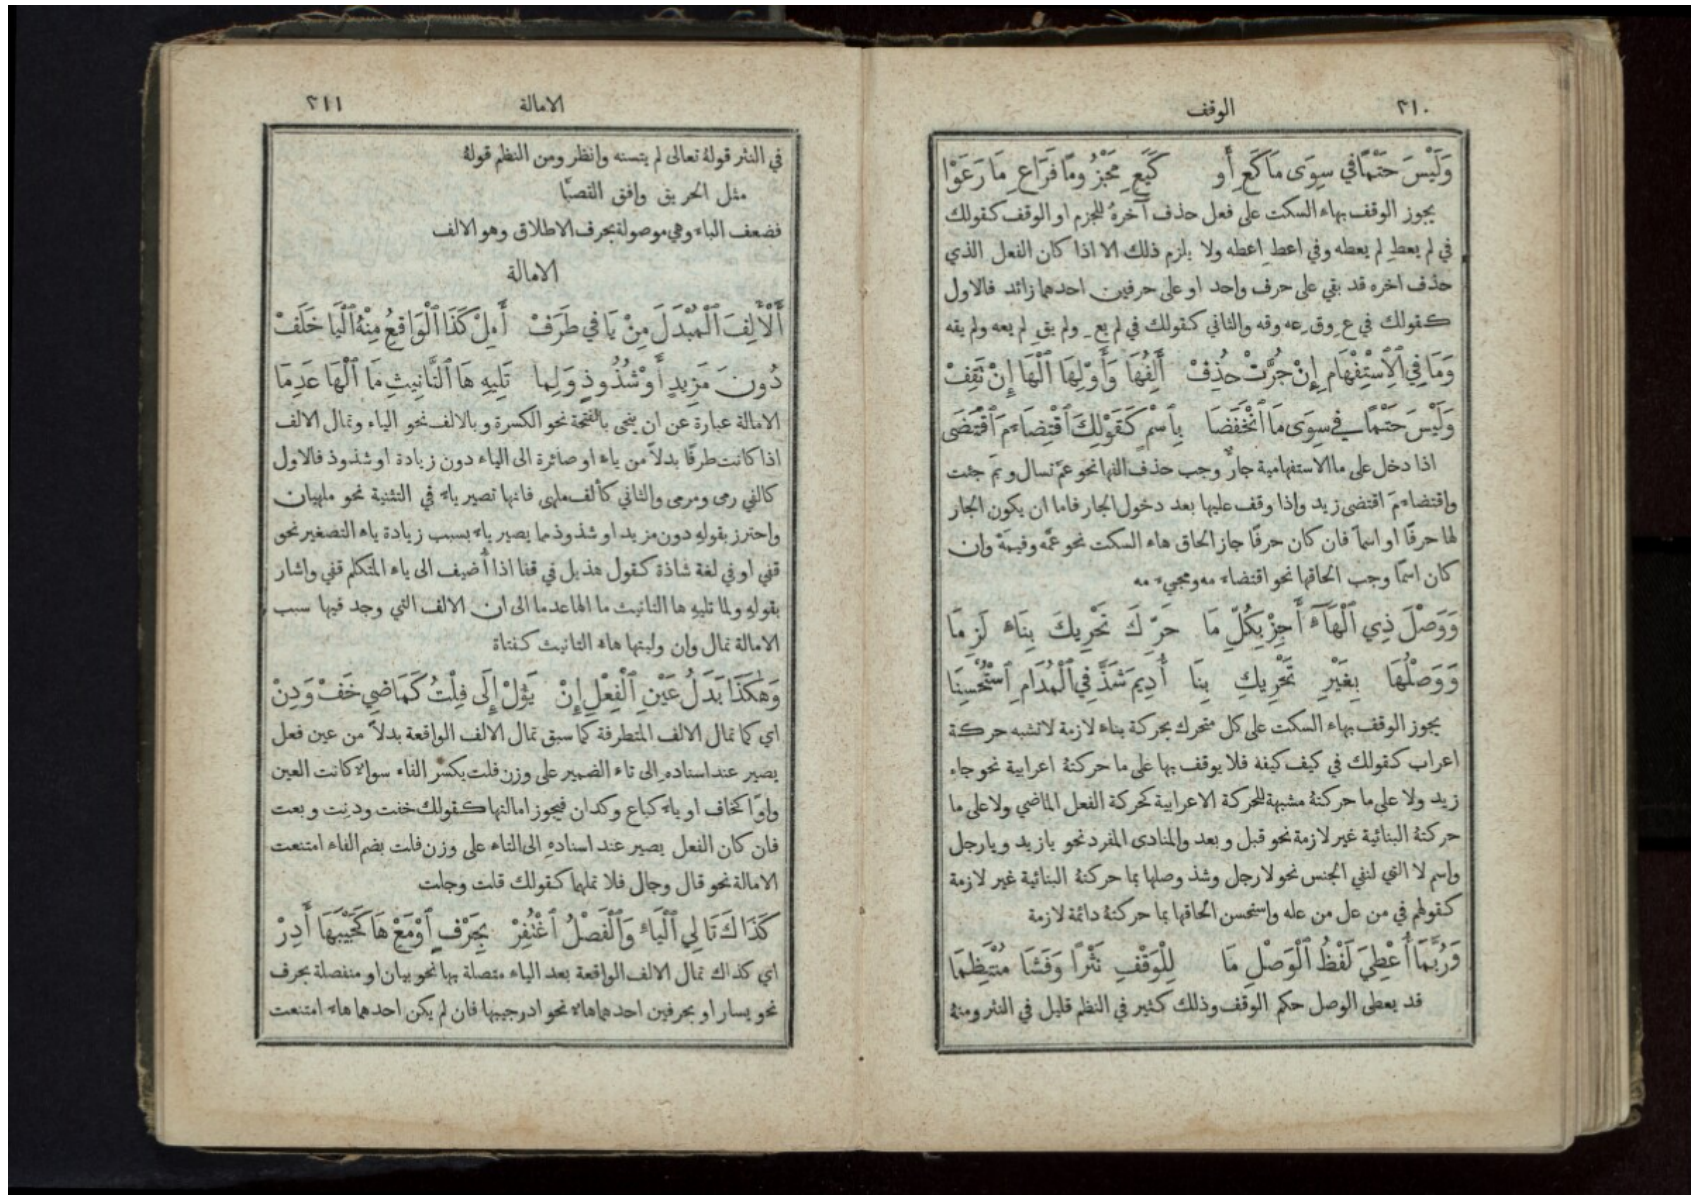 ٣١٠
الوقف
وَلَيْسَ حَتْمًا فِي سِوَى مَا كَعِ أَو كَيَعِ مَجْزُومًا فَرَاعِ مَا رَعَوْا
يجوز الوقف بهاء السكت على فعل حذف آخرهُ للجزم او الوقف كقولك
في لم يعطِ لم يعطه وفي اعطِ اعطه ولا يلزم ذلك الا اذا كان الفعل الذي
حذف اخره قد بقي على حرف واحد او على حرفين احدهما زائد فالاول
كقولك في عِ وقِ عه وقه والثاني كقولك في لم يعِ ولم يقِ لم يعه ولم يقه
وَمَا فِي ٱلِٱسْتِفْهَامِ إِنْ جُرَّتْ حُذِفْ أَلِفُهَا وَأَوْلِهَا ٱلْهَا إِنْ تَقِفْ
وَلَيْسَ حَتْمًا فِي سِوَى مَا ٱنْخَفَضَا بِٱسْمٍ كَقَوْلِكَ ٱقْتِضَاءَ مَ ٱقْتَضَى
اذا دخل على ما الاستفهامية جارٌ وجب حذف الفها نحو عمّ تسال وبمَ جئت
واقتضاءَ مَ اقتضى زيد واذا وقف عليها بعد دخول الجار فاما ان يكون الجار
لها حرفًا او اسمًا فان كان حرفًا جاز الحاق هاء السكت نحو عمّه وفيمهْ وان
كان اسمًا وجب الحاقها نحو اقتضاء مه ومجيء مه
وَوَصْلَ ذِي ٱلْهَآءِ أَجِزْ بِكُلِّ مَا حَرِّكَ تَحْرِيكَ بِنَاءٍ لَزِمَا
وَوَصْلُهَا بِغَيْرِ تَحْرِيكِ بِنَا أُدِيمَ شَذَّ فِي ٱلْمُدَامِ ٱسْتُحْسِنَا
يجوز الوقف بهاء السكت على كل متحرك بحركة بناء لازمة لا تشبه حركة
اعراب كقولك في كيف كيفه فلا يوقف بها على ما حركتهُ اعرابية نحو جاء
زيد ولا على ما حركتهُ مشبهة للحركة الاعرابية كحركة الفعل الماضي ولا على ما
حركتهُ البنائية غير لازمة نحو قبل وبعد والمنادى المفرد نحو يا زيد ويا رجل
واسم لا التي لنفي الجنس نحو لا رجل وشذ وصلها بما حركتهُ البنائية غير لازمة
كقولهم في من عل من عله واستحسن الحاقها بما حركتهُ دائمة لازمة
وَرُبَّمَا أُعْطِيَ لَفْظُ ٱلْوَصْلِ مَا لِلْوَقْفِ نَثْرًا وَفَشَا مُنْتَظِمَا
قد يعطى الوصل حكم الوقف وذلك كثير في النظم قليل في النثر ومنهُ
٣١١
الامالة
في النثر قولهُ تعالى لم يتسنه وانظر ومن النظم قولهُ
مثل الحريق وافق القصبّا
فضعف الباء وهي موصولة بحرف الاطلاق وهو الالف
الامالة
أَلْأَلِفَ ٱلْمُبْدَلَ مِنْ يَا فِي طَرَفْ أَمِلْ كَذَا ٱلْوَاقِعُ مِنْهُ ٱلْيَا خَلَفْ
دُونَ مَزِيدٍ أَوْ شُذُوذٍ وَلِما تَلِيهِ هَا ٱلتَّانِيثِ مَا ٱلْهَا عَدِمَا
الامالة عبارة عن ان ينحى بالفتحة نحو الكسرة وبالالف نحو الياء وتمال الالف
اذا كانت طرفًا بدلًا من ياء او صائرة الى الياء دون زيادة او شذوذ فالاول
كالفي رمى ومرمى والثاني كألف ملهى فانها تصير ياء في التثنية نحو ملهيان
واحترز بقولهِ دون مزيد او شذوذ مما يصير ياء بسبب زيادة ياء التصغير نحو
قفي او في لغة شاذة كقول هذيل في قفا اذا أُضيف الى ياء المتكلم قفي واشار
بقولهِ ولما تليهِ ها التانيث ما الها عدما الى ان الالف التي وجد فيها سبب
الامالة تمال وان وليتها هاء التانيث كفتاة
وَهٰكَذَا بَدَلُ عَيْنِ ٱلْفِعْلِ إِنْ يَؤُلْ إِلَى فِلْتُ كَمَاضِي خَفْ وَدِنْ
اي كما تمال الالف المتطرفة كما سبق تمال الالف الواقعة بدلًا من عين فعل
يصير عند اسنادهِ الى تاء الضمير على وزن فلت بكسر الفاء سوالا كانت العين
واوًا كخاف او ياء كباع وكدان فيجوز امالتها كقولك خفت ودنت وبعت
فان كان الفعل يصير عند اسنادهِ الى التاء على وزن فلت بضم الفاء امتنعت
الامالة نحو قال وجال فلا تملهما كقولك قلت وجلت
كَذَاكَ تَالِي ٱلْيَاءِ وَٱلْفَصْلُ ٱغْتُفِرْ بِحَرْفٍ ٱوْ مَعْ هَا كَجَيْبَهَا أَدِرْ
اي كذاك تمال الالف الواقعة بعد الياء متصلة بها نحو بيان او منفصلة بحرف
نحو يسار او بحرفين احدهما هاء نحو ادر جيبها فان لم يكن احدهما هاء امتنعت